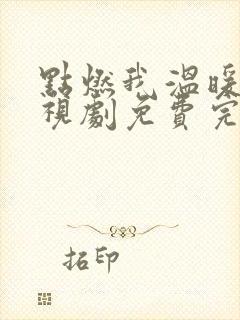 點燃我溫暖
視劇免費完
拓印